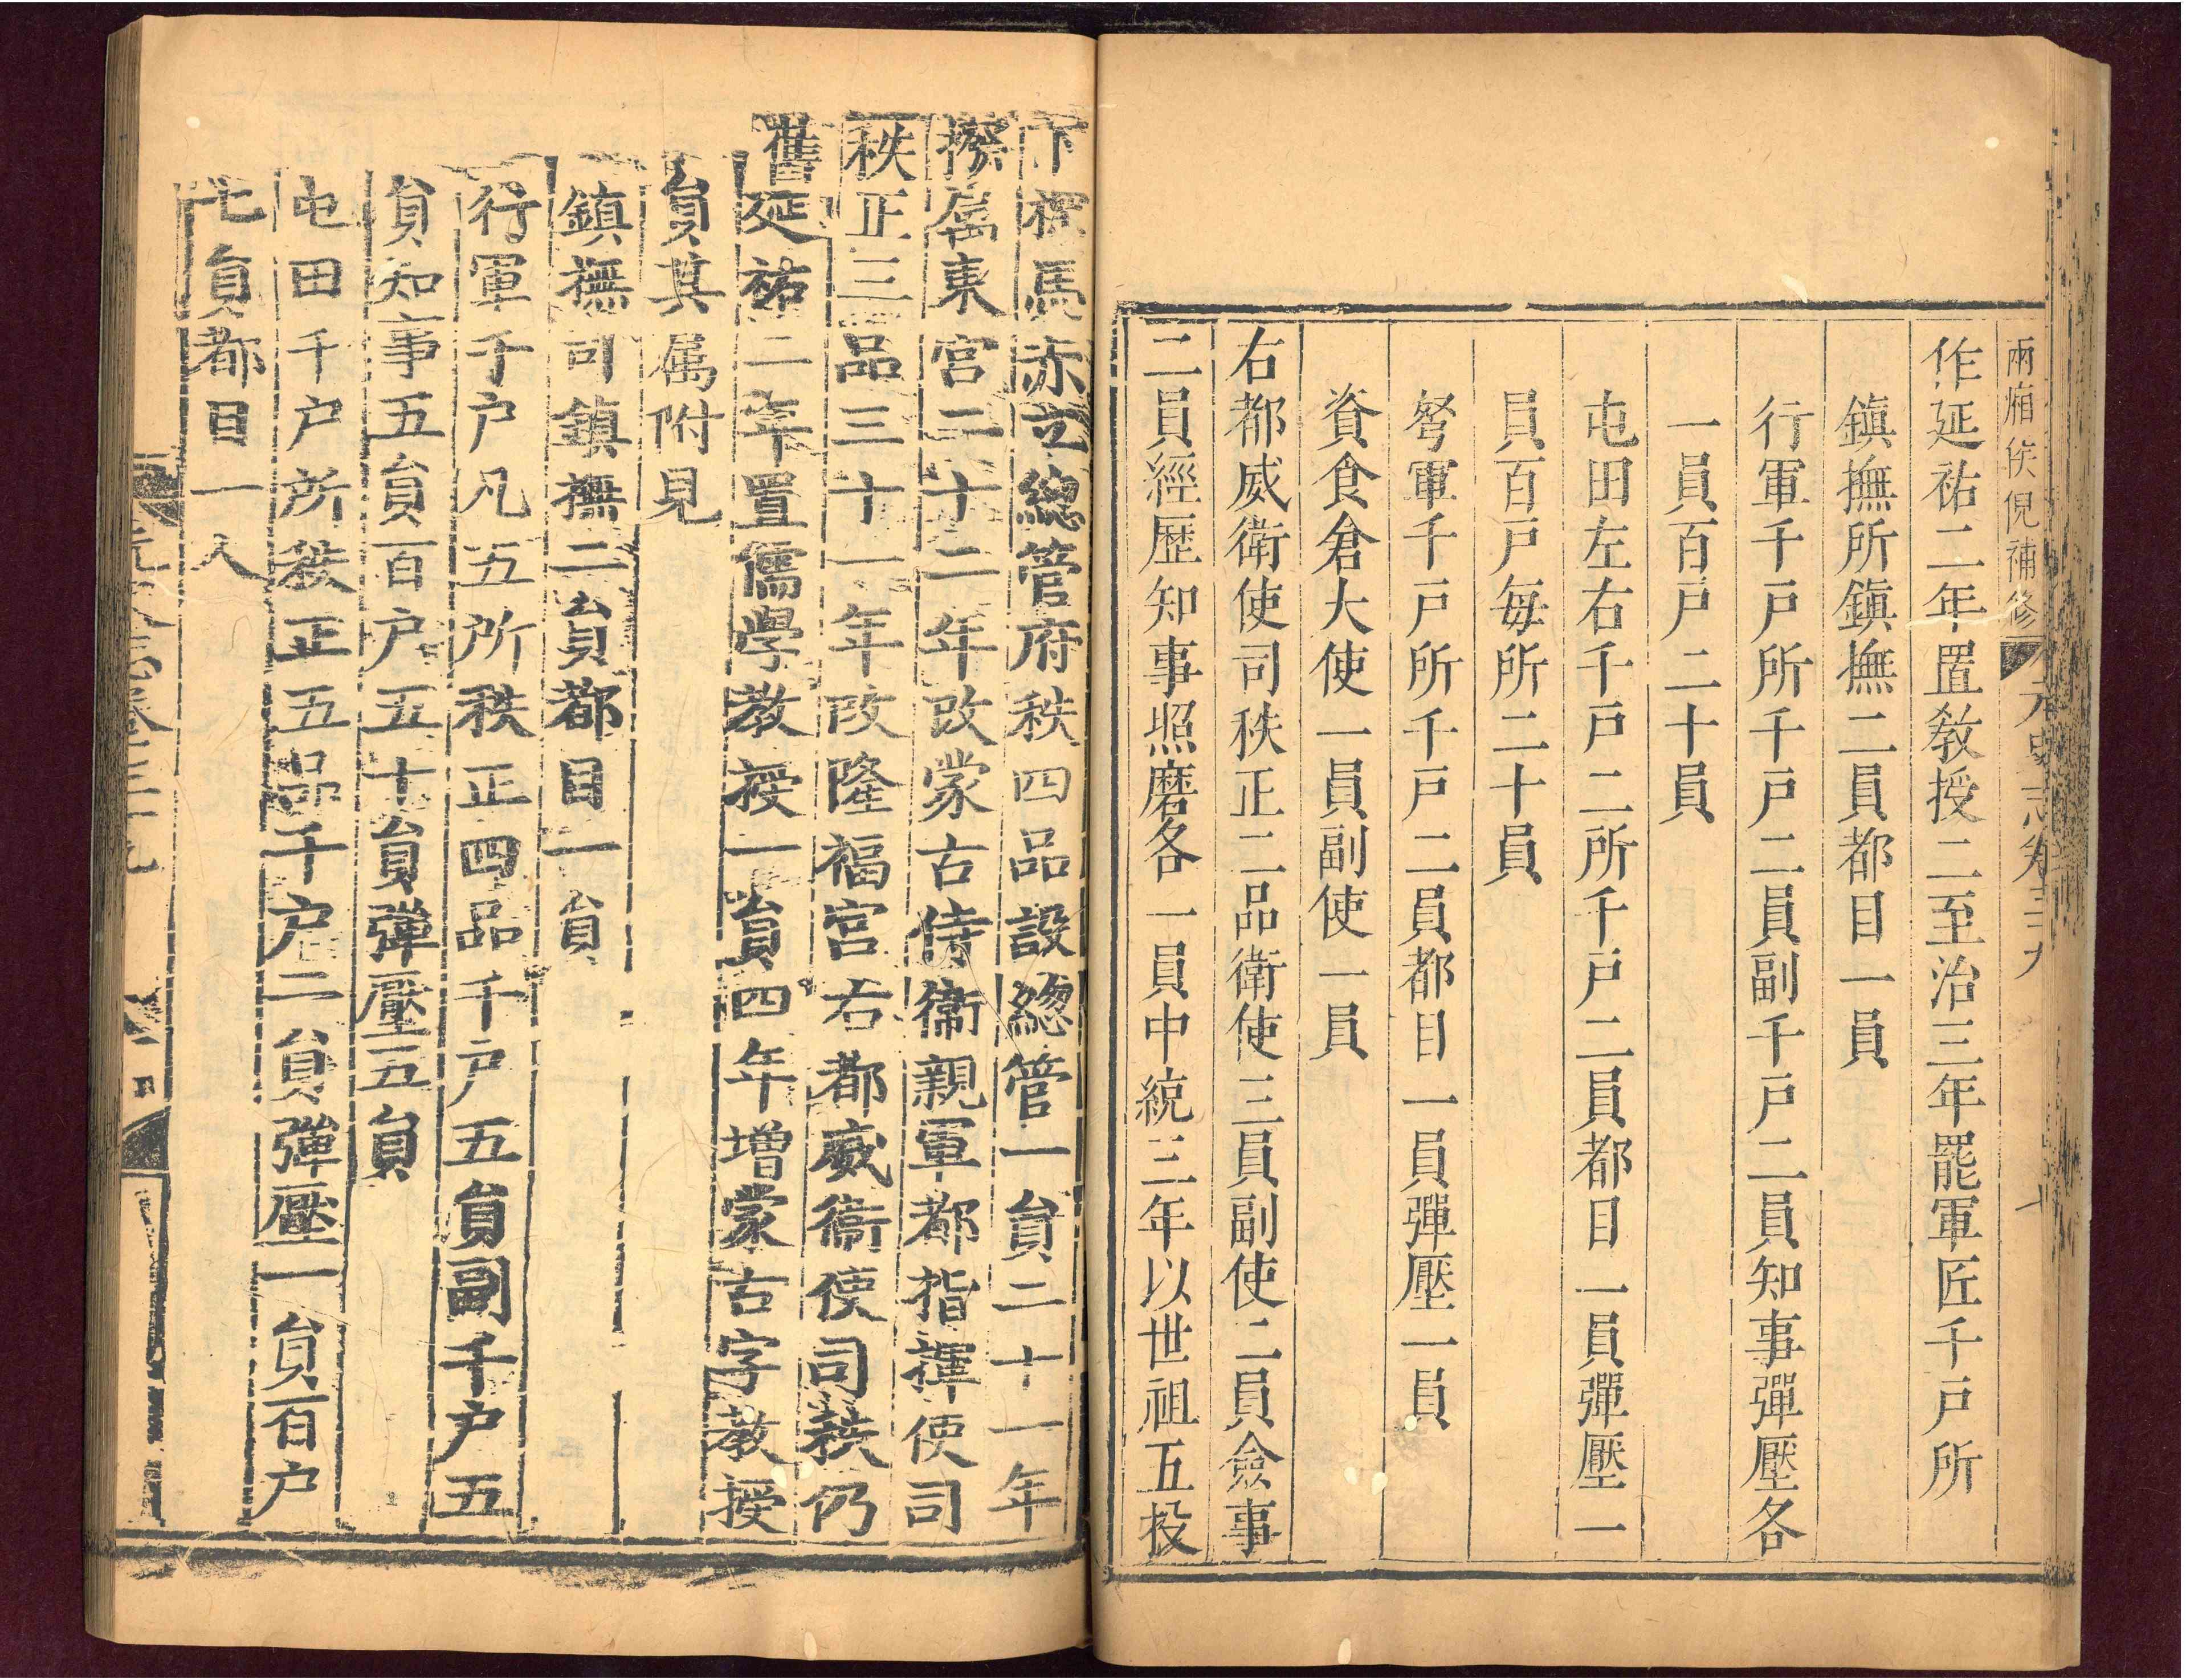 兩廂侯倪補修 元史志卷三十九
作延祐二年置敎授二至治三年罷軍匠千戸所
鎭撫所鎭撫二員都目一員
行軍千戸所千戸二員副千戸二員知事彈壓各
一員百戸二十員
屯田左右千戸二所千戸二員都目一員彈壓一
員百戸每所二十員
弩軍千戸所千戸二員都目一員彈壓一員
資食倉大使一員副使一員
右都威衛使司秩正二品衛使三員副使二員僉事
二員經歷知事照磨各一員中統三年以世祖五投
下探馬赤立總管府秩四品設總管一員二十一年
撥屬東宮二十二年改蒙古侍衞親軍都指揮使司
秩正三品三十一年改隆福宮右都威衞使司秩仍
舊延祐二年置儒學教授一員四年增蒙古字教授
員其属附見
鎮撫司鎮撫二員都目一員
行軍千户凡五所秩正四品千户五員副千户五
員知事五員百户五十員彈壓五員
屯田千户所秩正五品千户二員彈壓一員百户
七員都目一人
元史志卷三十九